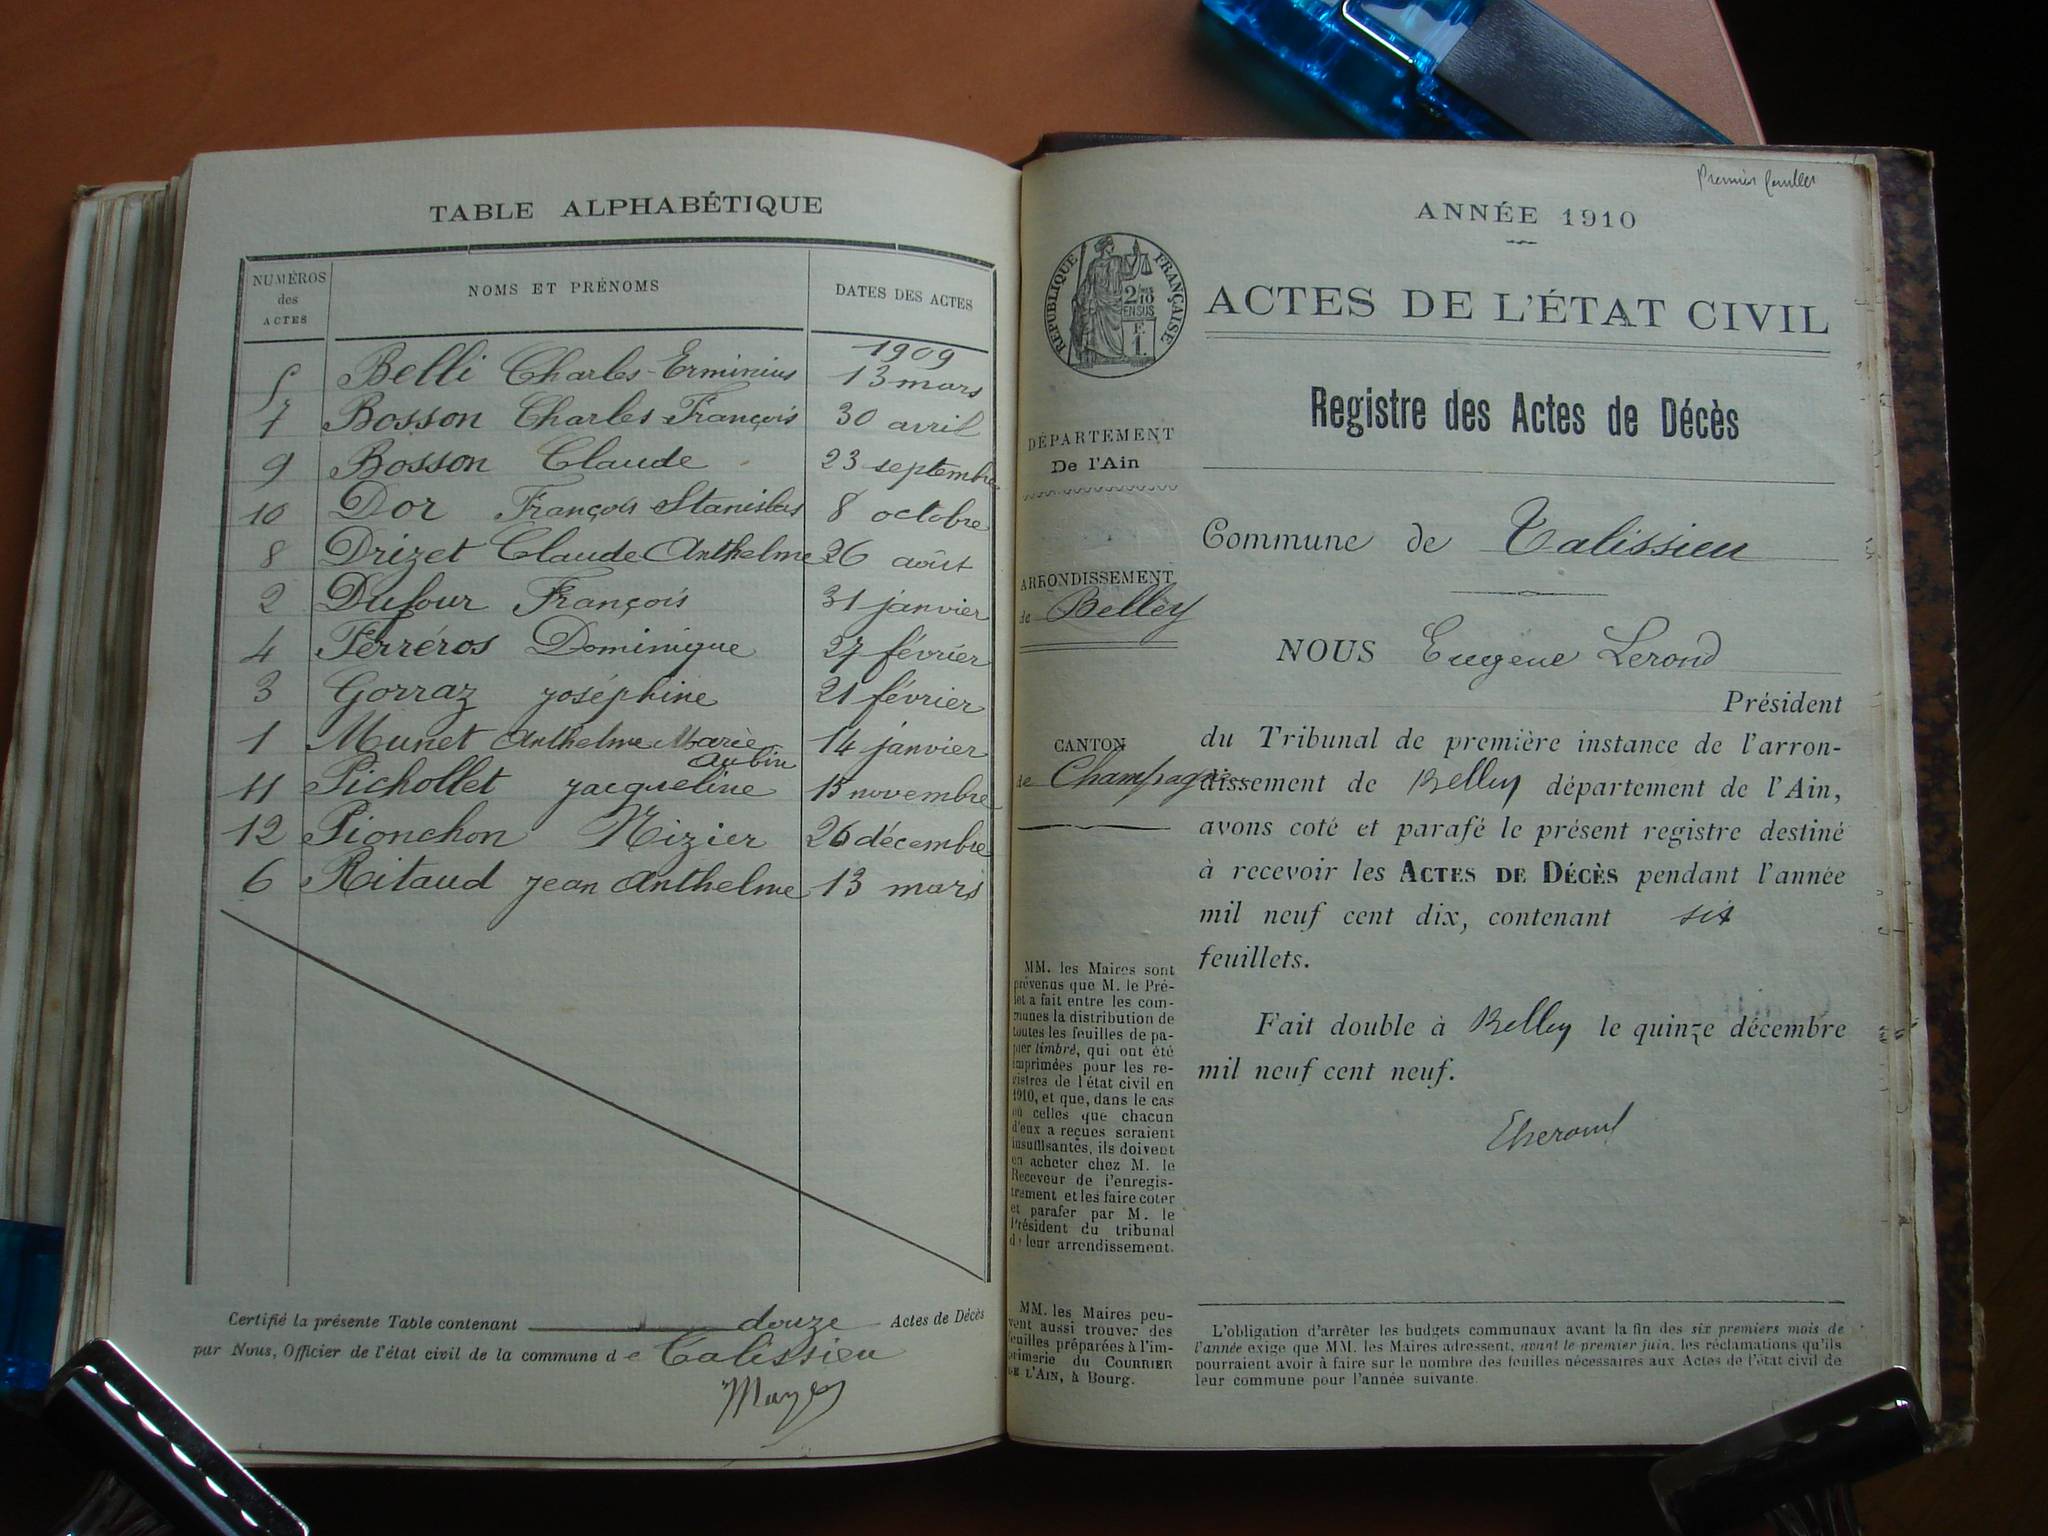 TABLE ALPHABÉTIQUE
NUMÉROS des ACTES NOMS ET PRÉNOMS DATES DES ACTES
1909
5 Belli Charles-Erminius 13 mars
7 Bosson Charles François 30 avril
9 Bosson Claude 23 septembre
10 Dor François Stanislas 8 octobre
8 Drizet Claude Anthelme 26 août
2 Dufour François 31 janvier
4 Ferréros Dominique 27 février
3 Gorraz joséphine 21 février
1 Munet Anthelme Marie Aubin 14 janvier
11 Pichollet jacqueline 15 novembre
12 Pionchon Nizier 26 décembre
6 Ritaud jean Anthelme 13 mars
Certifié la présente Table contenant douze Actes de Décès
par Nous, Officier de l'état civil de la commune de Talissieu
Premier feuillet
ANNÉE 1910
RÉPUBLIQUE FRANÇAISE
2/10 EN SUS
F. 1.
ACTES DE L'ÉTAT CIVIL
Registre des Actes de Décès
DÉPARTEMENT
De l'Ain
Commune de Talissieu
ARRONDISSEMENT
de Belley
NOUS Eugène Lerond
Président
CANTON
de Champagne
du Tribunal de première instance de l'arron-
dissement de Belley département de l'Ain,
avons coté et parafé le présent registre destiné
à recevoir les ACTES DE DÉCÈS pendant l'année
mil neuf cent dix, contenant six
feuillets.
Fait double à Belley le quinze décembre
mil neuf cent neuf.
MM. les Maires sont
prévenus que M. le Pré-
fet a fait entre les com-
munes la distribution de
toutes les feuilles de pa-
pier timbré, qui ont été
imprimées pour les re-
gistres de l'état civil en
1910, et que, dans le cas
où celles que chacun
d'eux a reçues seraient
insuffisantes, ils doivent
en acheter chez M. le
Receveur de l'enregis-
trement et les faire coter
et parafer par M. le
Président du tribunal
de leur arrondissement.
MM. les Maires peu-
vent aussi trouver des
feuilles préparées à l'im-
primerie du COURRIER
DE L'AIN, à Bourg.
L'obligation d'arrêter les budgets communaux avant la fin des six premiers mois de
l'année exige que MM. les Maires adressent, avant le premier juin, les réclamations qu'ils
pourraient avoir à faire sur le nombre des feuilles nécessaires aux Actes de l'état civil de
leur commune pour l'année suivante.